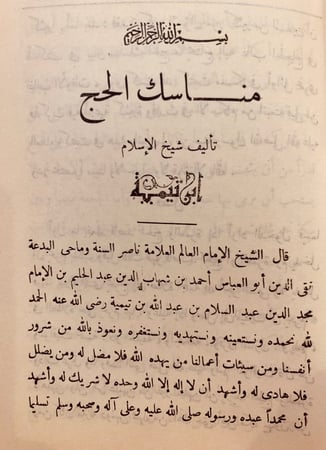 بسم الله الرحمن الرحيم
مناسك الحج
تأليف شيخ الإسلام
ابن تيمية
قال الشيخ الإمام العالم العلامة ناصر السنة وماحى البدعة
تقى الدين أبو العباس أحمد بن شهاب الدين عبد الحليم بن الإمام
مجد الدين عبد السلام بن عبد الله بن تيمية رضى الله عنه الحمد
لله نحمده ونستعينه ونستهديه ونستغفره ونعوذ بالله من شرور
أنفسنا ومن سيئات أعمالنا من يهده الله فلا مضل له ومن يضلل
فلا هادى له وأشهد أن لا إله إلا الله وحده لا شريك له وأشهد
أن محمداً عبده ورسوله صلى الله عليه وعلى آله وصحبه وسلم تسليما